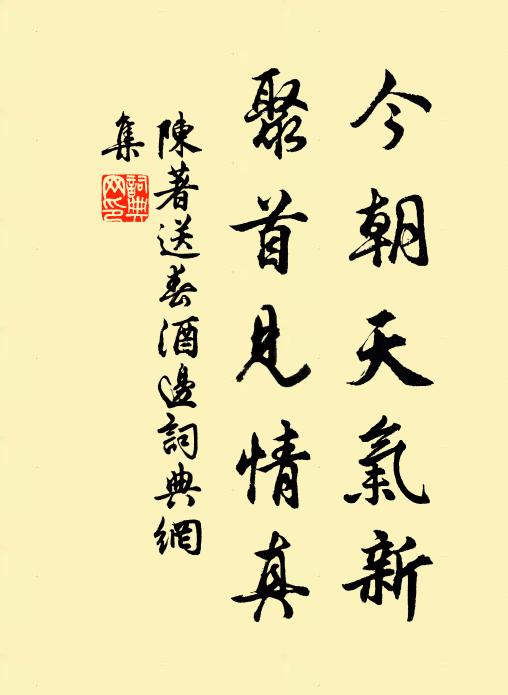 今朝天氣新
聚首見情真
陳著送春酒邊詞典網
集
詞典
網印